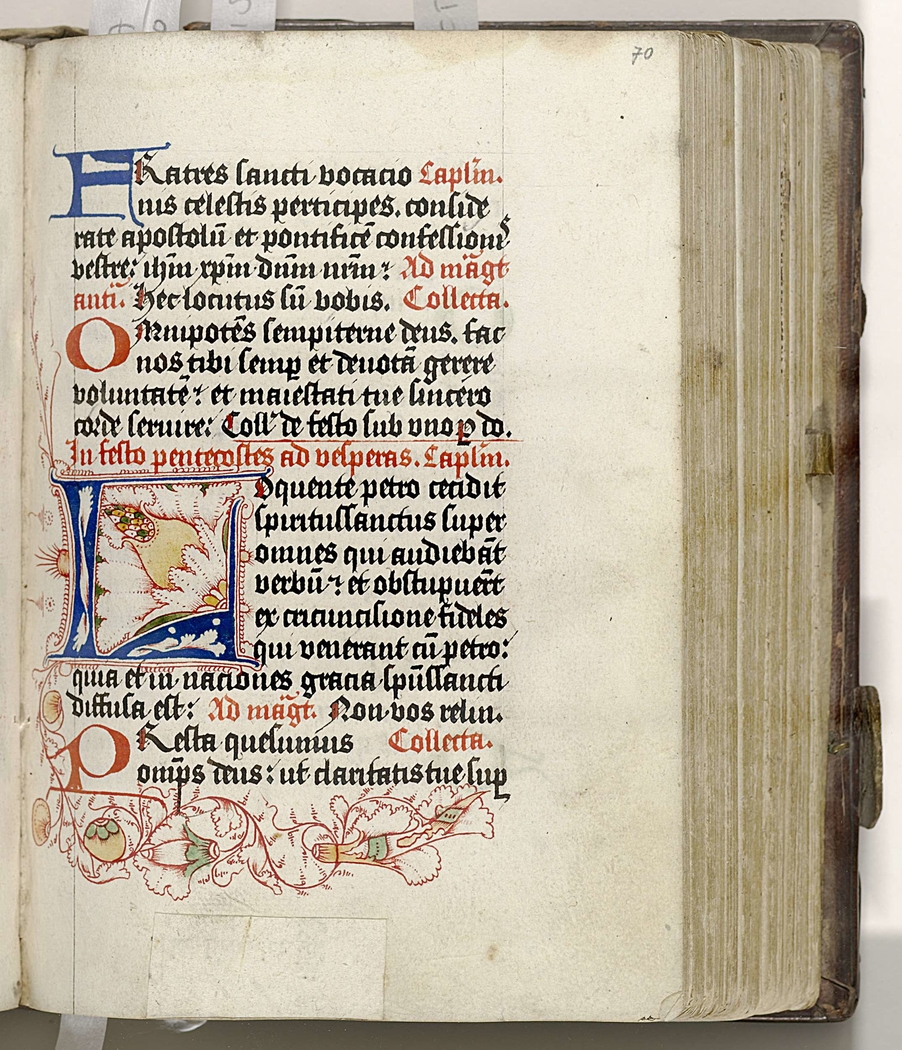 70
FRatres sancti vocacio Caplm̄.
nis celestis perticipes. conside
rate apostolū et pontificē confessionis
vestre: ihm̄ xpm̄ dūm nrm̄: Ad māgt
anti. Hec locutus sū vobis. Collecta.
OMnipotēs sempiterne deus. fac
nos tibi semp et deuotā gerere
voluntatē: et maiestati tue sincero
corde seruire: Coll' de festo sub vno ꝑ do.
In festo pentecostes ad vesperas. Caplm̄.
LOquente petro cecidit
spiritussanctus super
omnes qui audiebāt
verbū: et obstupuer̄t
ex circuncisione fideles
qui venerant cū petro:
quia et in naciones gracia sp̄ussancti
diffusa est: Ad māgt. Non vos relin.
PResta quesumus Collecta.
omp̄s deus: ut claritatis tue suꝑ